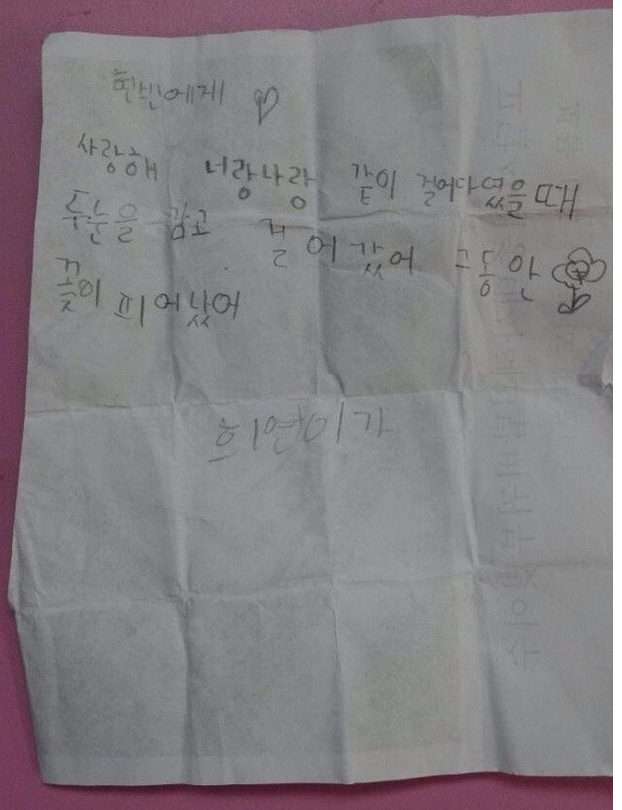 현빈에게
사랑해 너랑나랑 같이 걸어다녔을때
두눈을 감고 걸어갔어 그동안
꽃이 피어났어